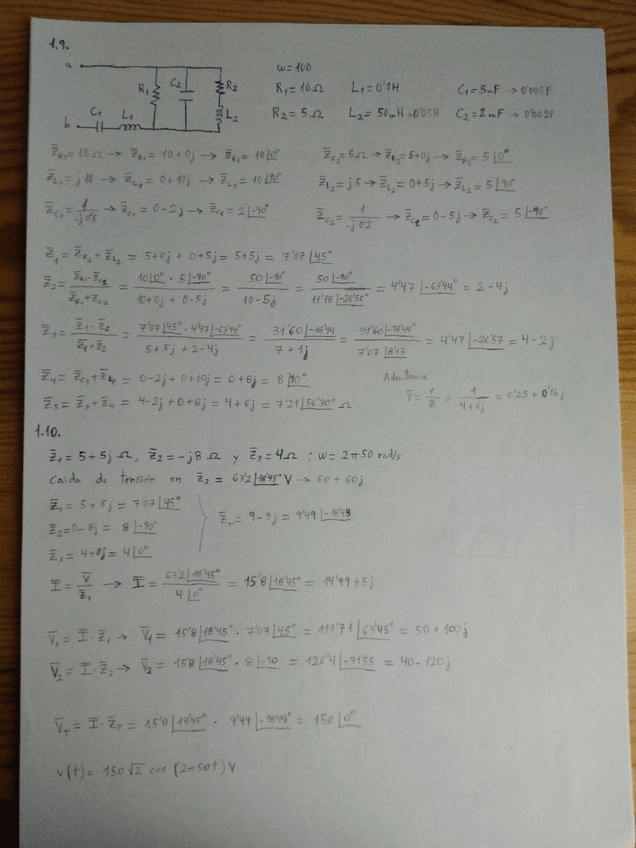 1.9.
a
R₁ C₂ R₂
L₂
b C₁ L₁
ω=100
R₁ = 10Ω L₁ = 0'1H C₁ = 5mF → 0'005F
R₂ = 5Ω L₂ = 50mH → 0'05H C₂ = 2mF → 0'002F
Z̄R₁ = 10Ω → Z̄R₁ = 10+0j → Z̄R₁ = 10|0° Z̄R₂ = 5Ω → Z̄R₂ = 5+0j → Z̄R₂ = 5|0°
Z̄L₁ = j10 → Z̄L₁ = 0+10j → Z̄L₁ = 10|90° Z̄L₂ = j5 → Z̄L₂ = 0+5j → Z̄L₂ = 5|90°
Z̄C₁ = 1/j0'5 → Z̄C₁ = 0-2j → Z̄C₁ = 2|-90° Z̄C₂ = 1/j0'2 → Z̄C₂ = 0-5j → Z̄C₂ = 5|-90°
Z̄₁ = Z̄R₂ + Z̄L₂ = 5+0j + 0+5j = 5+5j = 7'07|45°
Z̄₂ = Z̄R₁·Z̄C₂ / Z̄R₁+Z̄C₂ = 10|0° · 5|-90° / 10+0j + 0-5j = 50|-90° / 10-5j = 50|-90° / 11'18|-26'56° = 4'47|-63'44° = 2-4j
Z̄₃ = Z̄₁·Z̄₂ / Z̄₁+Z̄₂ = 7'07|45° · 4'47|-63'44° / 5+5j + 2-4j = 31'60|-18'44 / 7+1j = 31'60|-18'44° / 7'07|8'13 = 4'47|-26'57 = 4-2j
Z̄₄ = Z̄C₁ + Z̄L₁ = 0-2j + 0+10j = 0+8j = 8|90°
Z̄₅ = Z̄₃ + Z̄₄ = 4-2j + 0+8j = 4+6j = 7'21|56'30° Ω
Admitancia
Ȳ = 1/Z̄ = 1/4+6j = 0'25 + 0'16j
1.10.
Z̄₁ = 5+5j Ω, Z̄₂ = -j8 Ω y Z̄₃ = 4Ω ; ω = 2π50 rad/s
Caida de tensión en Z̄₃ = 63'2|18'45° V → 60+60j
Z̄₁ = 5+5j = 7'07|45°
Z̄₂ = 0-8j = 8|-90° Z̄T = 9-3j = 9'49|-18'43
Z̄₃ = 4+0j = 4|0°
Ī = V̄/Z̄₃ → Ī = 63'2|18'45° / 4|0° = 15'8|18'45° = 14'99+5j
V̄₁ = Ī·Z̄₁ → V̄₁ = 15'8|18'45° · 7'07|45° = 111'71|63'45° = 50+100j
V̄₂ = Ī·Z̄₂ → V̄₂ = 15'8|18'45° · 8|-90 = 126'4|-71'55 = 40-120j
V̄T = Ī·Z̄T = 15'8|18'45° · 9'49|-18'43° = 150|0°
v(t) = 150√2 cos (2π50t) V